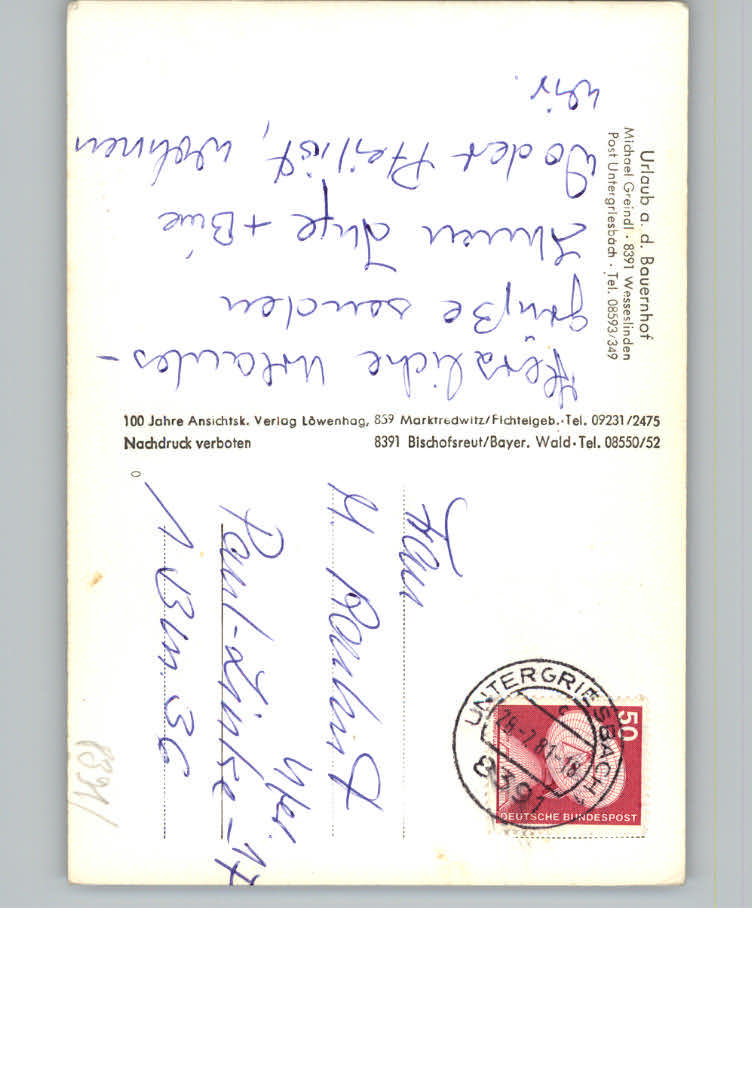 Urlaub a. d. Bauernhof
Michael Greindl · 8391 Wesseslinden
Post Untergriesbach · Tel. 08593/349
Herzliche Urlaubs-
grüße senden
Ihnen Inge +
Wo der Pfeil ist, wohnen
wir.
100 Jahre Ansichtsk. Verlag Löwenhag, 859 Marktredwitz/Fichtelgeb.·Tel. 09231/2475
Nachdruck verboten 8391 Bischofsreut/Bayer. Wald·Tel. 08550/52
Frau
M.
Paul-Lincke-Ufer 17
1 Bln. 36
UNTERGRIESBACH
c
28.-7.81-18
8391
50
DEUTSCHE BUNDESPOST
8391/